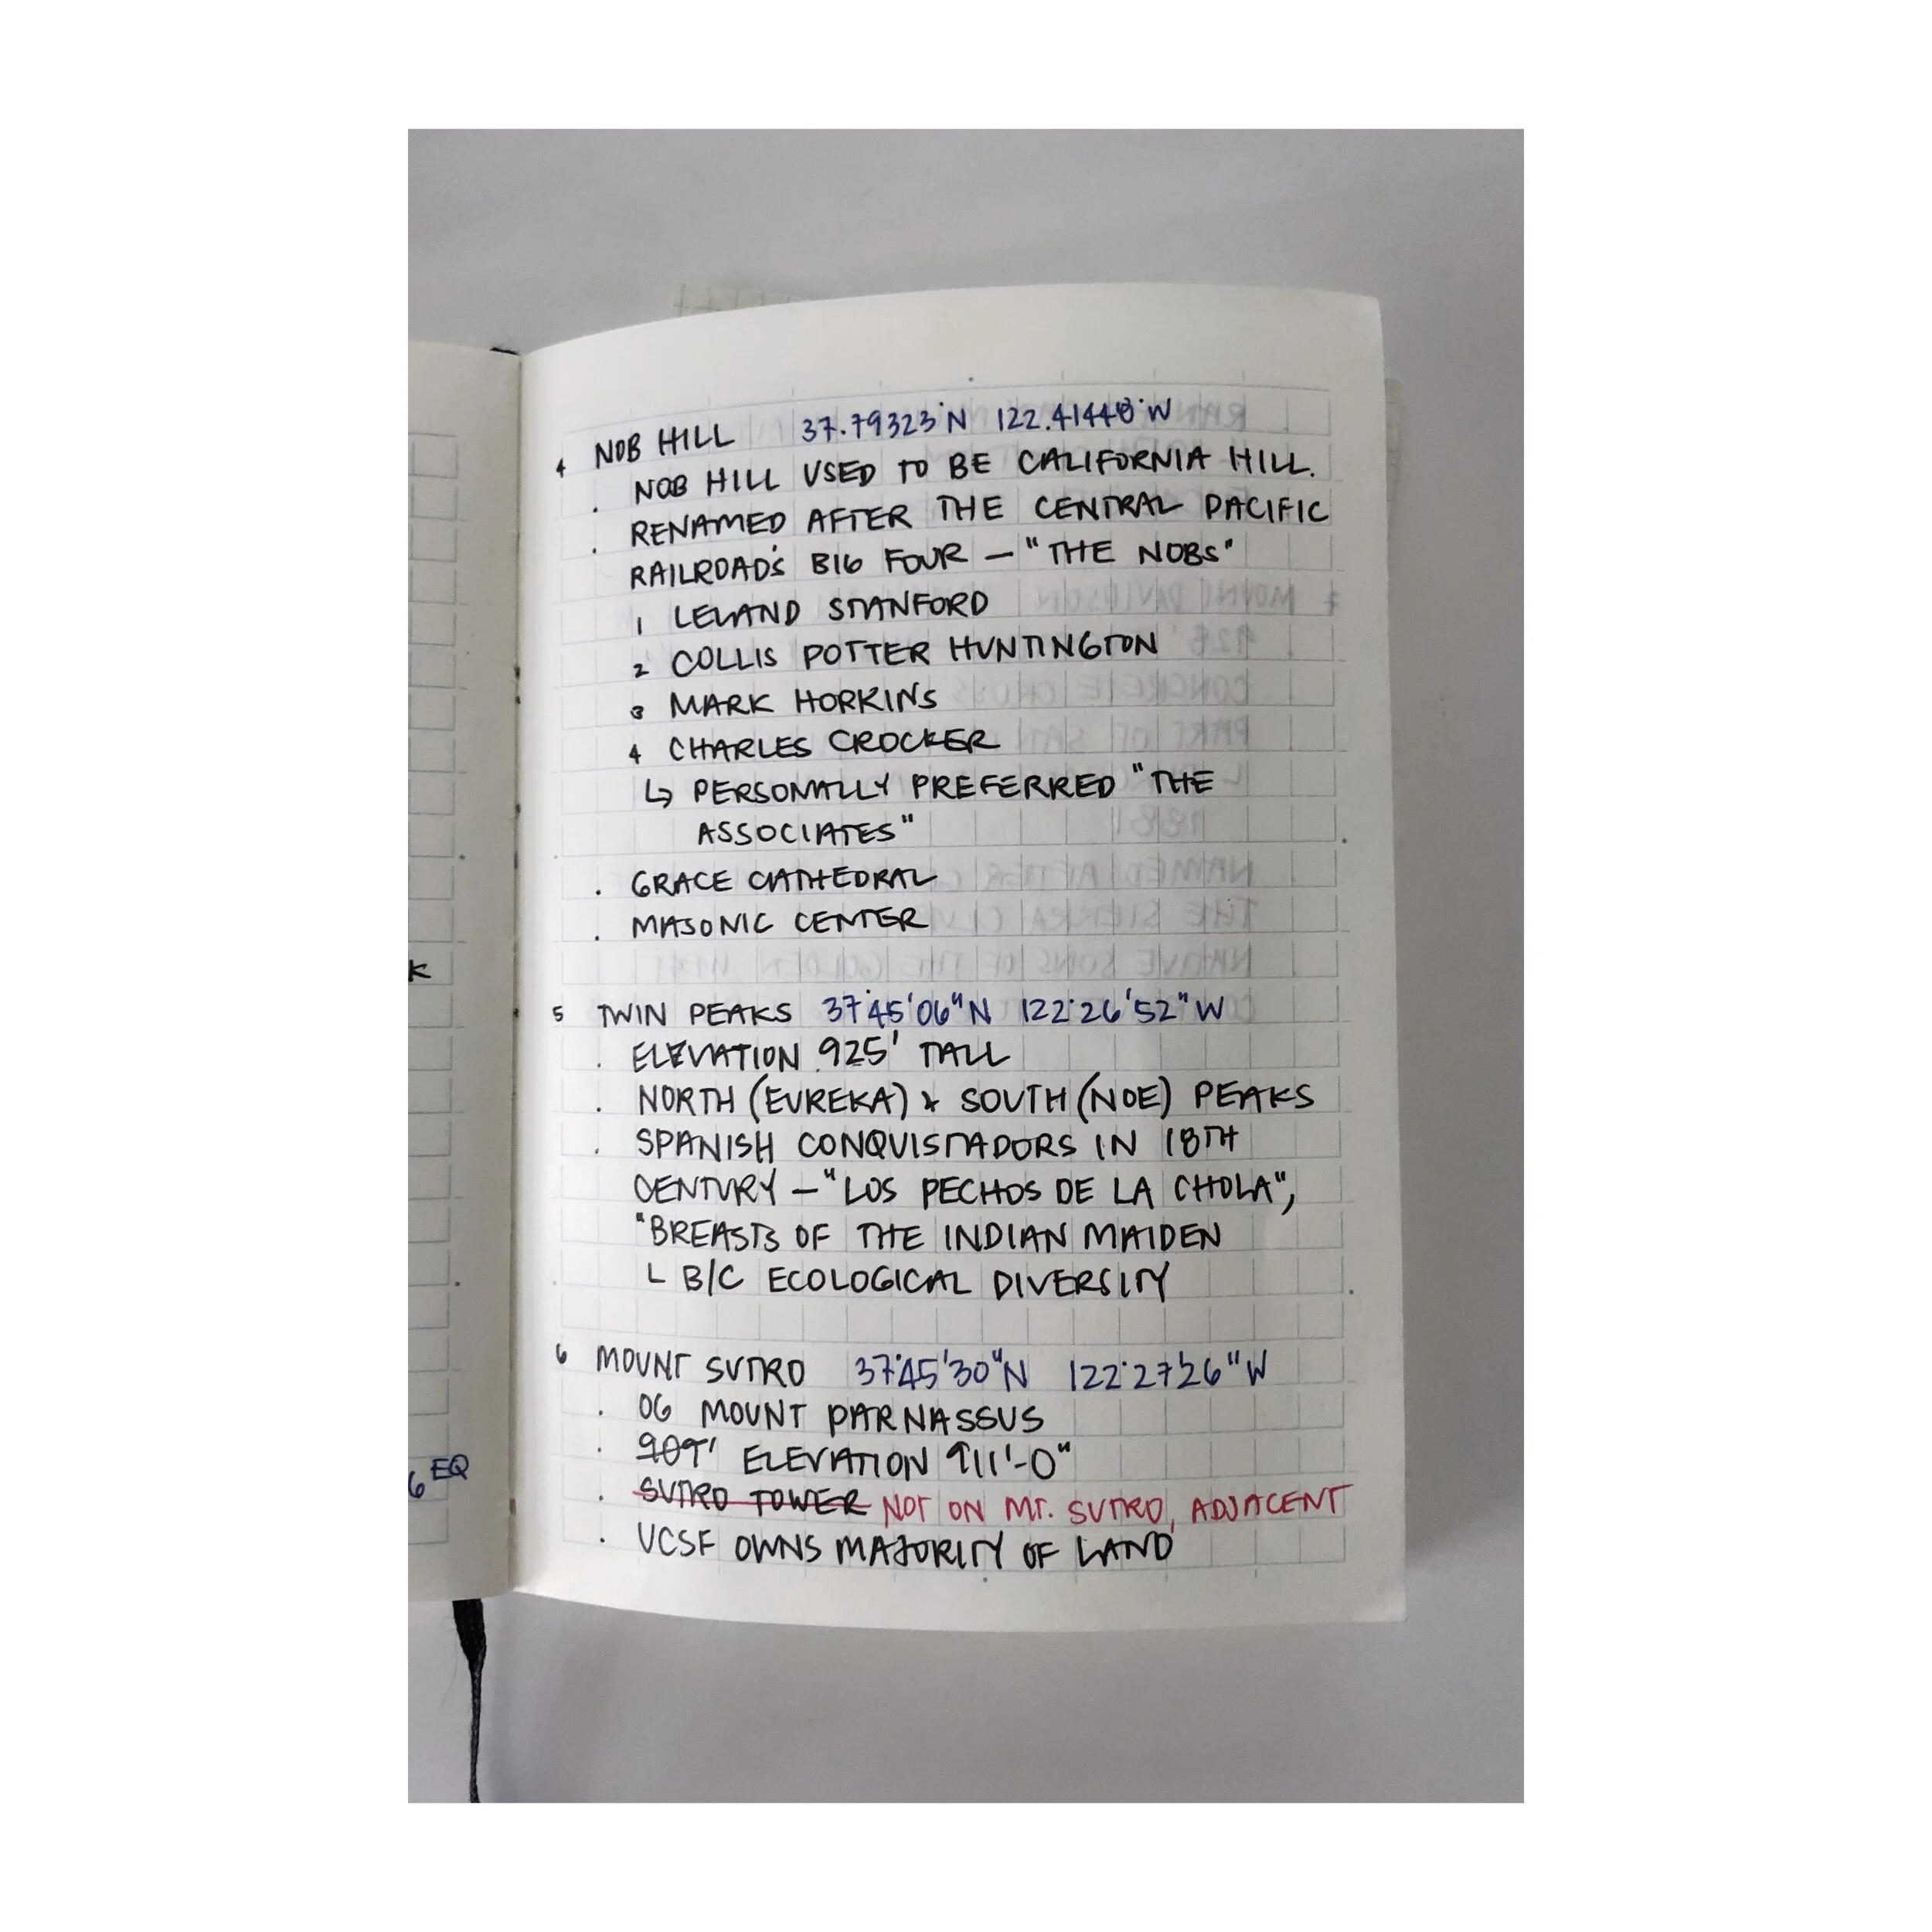 4 NOB HILL 37.79323°N 122.41448°W
. NOB HILL USED TO BE CALIFORNIA HILL.
. RENAMED AFTER THE CENTRAL PACIFIC
RAILROAD'S BIG FOUR — "THE NOBS"
1 LELAND STANFORD
2 COLLIS POTTER HUNTINGTON
3 MARK HOPKINS
4 CHARLES CROCKER
↳ PERSONALLY PREFERRED "THE
ASSOCIATES"
. GRACE CATHEDRAL
. MASONIC CENTER
K
5 TWIN PEAKS 37°45'06"N 122°26'52"W
. ELEVATION 925' TALL
. NORTH (EUREKA) & SOUTH (NOE) PEAKS
. SPANISH CONQUISTADORS IN 18TH
CENTURY — "LOS PECHOS DE LA CHOLA",
"BREASTS OF THE INDIAN MAIDEN
L B/C ECOLOGICAL DIVERSITY
6 MOUNT SUTRO 37°45'30"N 122°27'26"W
. OG MOUNT PARNASSUS
. 909' ELEVATION 911'-0"
. SUTRO TOWER NOT ON MT. SUTRO, ADJACENT
. UCSF OWNS MAJORITY OF LAND
6 EQ